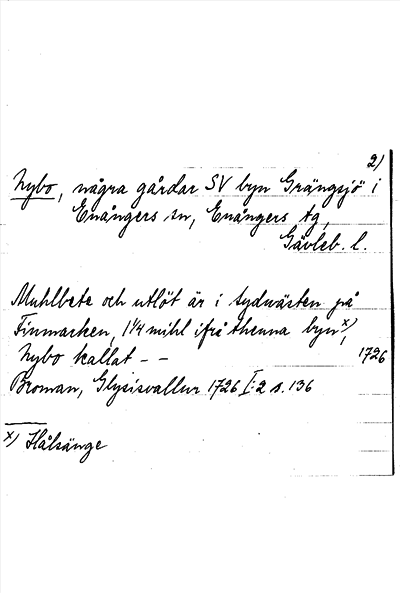 2)
Nybo, några gårdar SV byn Grängsjö i
Enångers sn, Enångers tg,
Gävleb. l.
Muhlbete och utlöt är i sydwästen på
Finmarken, 1 1/4 mihl ifrå thenna byn x),
Nybo kallat - - 1726
Broman, Glysisvallur 1726 I:2 s. 136
x) Hålsänge